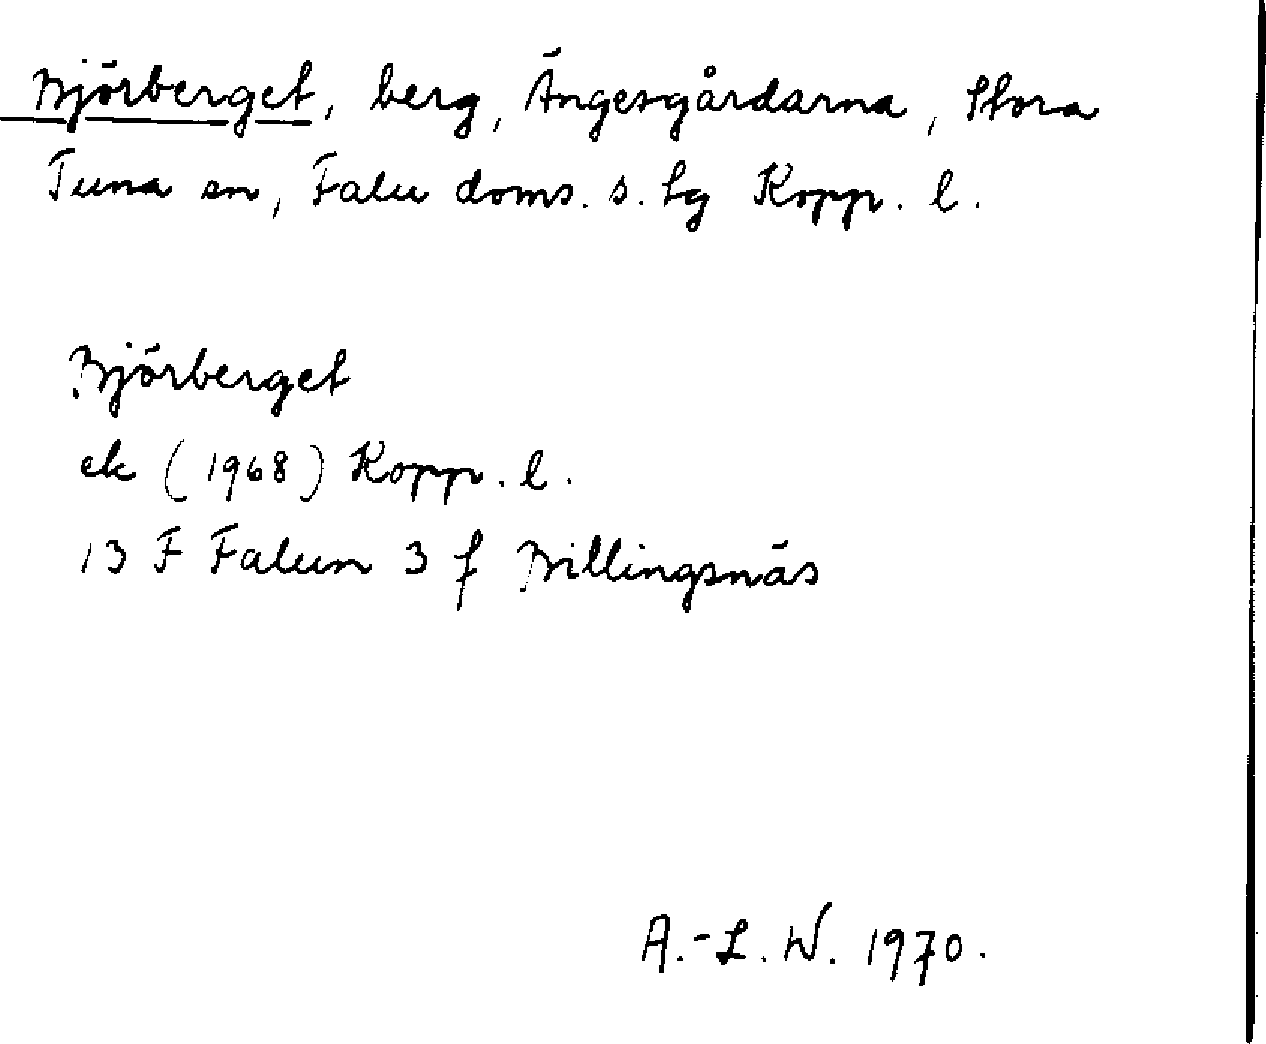 Björberget, berg, Ängesgårdarna, Stora
Tuna sn, Falu doms. s. tg Kopp. l.
Björberget
ek (1968) Kopp. l.
13 F Falun 3 f Billingsnäs
A.-L. W. 1970.